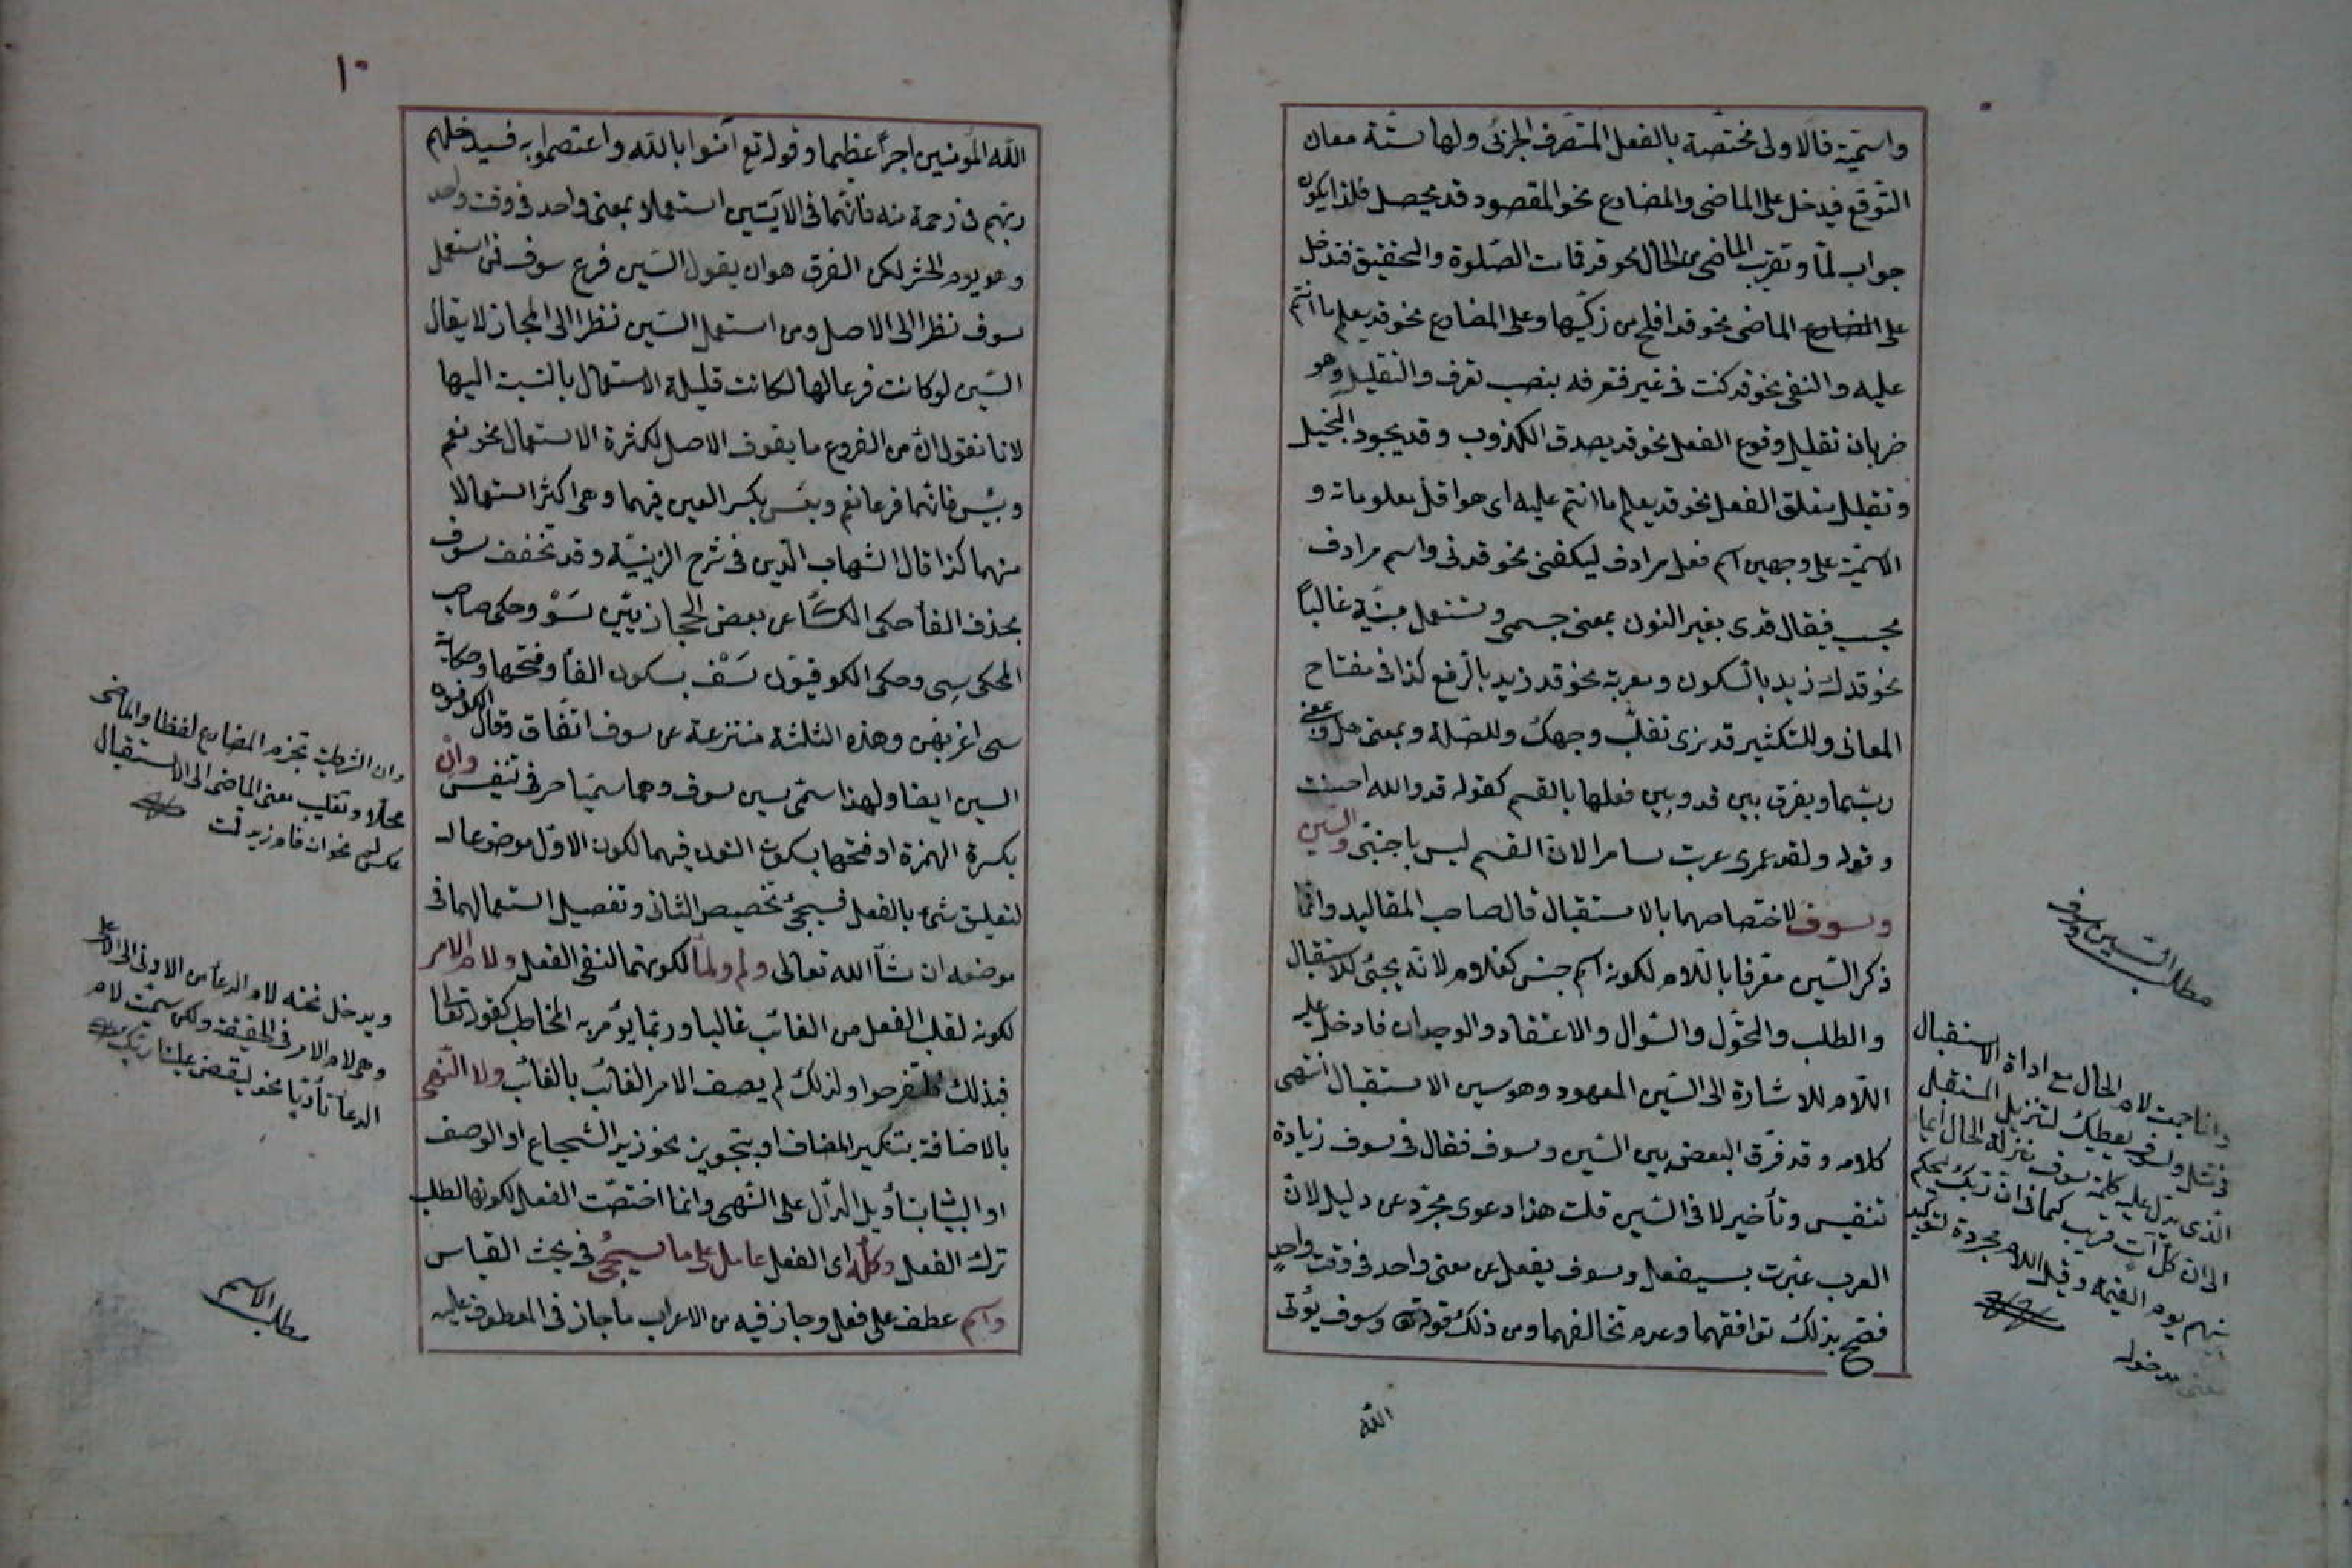 واسمية فالاولى مختصة بالفعل المتصرف الجزئى ولها ستة معان
التوقع فيدخل على الماضى والمضارع نحو المقصود قد يحصل فلذا يكون
جواب لما وتقرب الماضى من الحال نحو قد قامت الصلوة والتحقيق فتدخل
على المضارع الماضى نحو قد افلح من زكيها وعلى المضارع نحو قد يعلم ما انتم
عليه والنفى نحو قد كنت فى غير فتعرفه بنصب تعرف والتقليل وهو
ضربان تقليل وقوع الفعل نحو قد يصدق الكذوب وقد يجود البخيل
وتقليل متعلق الفعل نحو قد يعلم ما انتم عليه اى هو اقل معلوماته و
الاسمية على وجهين اسم فعل مرادف ليكفنى نحو قدنى واسم مرادف
بحسب فيقال قدى بغير النون بمعنى حسبى وتستعمل مبنية غالباً
نحو قدك زيد بالسكون ومعربة نحو قد زيد بالرفع كذا فى مفتاح
المعانى وللتكثير قد نرى تقلب وجهك وللصلة وبمعنى هل وبمعنى
ربما ويفرق بين قد وبين فعلها بالقسم كقوله قد والله احسنت
وقوله ولقد عمرى عربت سامرا لان القسم ليس باجنبى والسين
وسوف لاختصاصهما بالاستقبال قال صاحب المقاليد وانما
ذكر السين معرفا باللام لكونه اسم جنس كغلام لانه يجئ للاستقبال
والطلب والتحول والسوال والاعتقاد والوجدان فادخل عليه
اللام للاشارة الى السين المعهود وهو سين الاستقبال انتهى
كلامه وقد فرق البعض بين السين وسوف فقال فى سوف زيادة
تنفيس وتأخير لا فى السين قلت هذا دعوى مجرد عن دليل لان
العرب عبرت بسيفعل وسوف يفعل عن معنى واحد فى وقت واحد
فصح بذلك توافقهما وعدم تخالفهما ومن ذلك قوله تع وسوف يؤتى
الله
مطلب السين وسوف
وانما جمعت لام الحال مع اداة الاستقبال
فى مثل ولسوف يعطيك لتنزيل المستقبل
الذى يدل عليه كلمة سوف بمنزلة الحال ايما
الى ان كل آت قريب كما فى ان ربك ليحكم
بينهم يوم القيمة وقيل اللام مجردة لتوكيد
مدخوله
١٠
الله المؤمنين اجراً عظيما وقوله تع آمنوا بالله واعتصموا به فسيدخلهم
ربهم فى رحمة منه فانهما فى الآيتين استعملا بمعنى واحد فى وقت واحد
وهو يوم الحشر لكن الفرق هو ان يقول السين فرع سوف فمن استعمل
سوف نظرا الى الاصل ومن استعمل السين نظرا الى المجاز لا يقال
السين لو كانت فرعا لها لكانت قليلة الاستعمال بالنسبت اليها
لانا نقول ان من الفروع ما يفوق الاصل لكثرة الاستعمال نحو نعم
وبئس فانهما فرعا نعم وبئس بكسر العين فيهما وهى اكثر استعمالا
منهما كذا قال الشهاب الدين فى شرح الزينية وقد تخفف سوف
بحذف الفاء حكى الكسائى عن بعض الحجازيين سَوْ وحكى صاحب
المحكى سى وحكى الكوفيون سَفْ بسكون الفاء وفتحها وحكاية
سى اغربهن وهذه الثلثة منتزعة عن سوف اتفاق وقال الكوفيون
السين ايضا ولهذا سمى سين سوف وهما سميا حرفى تنفيس وانْ
بكسرة الهمزة او فتحها بسكون النون فيهما لكون الاول موضوعا لـ
لتعليق شئ بالفعل فسيجئ تخصيص الثانى وتفصيل استعمالهما فى
موضعه ان شاء الله تعالى ولم ولما لكونهما لنفى الفعل ولام الامر
لكونه لقلب الفعل من الغائب غالبا وربما يؤمر به المخاطب كقوله تعالى
فبذلك فلتفرحوا ولذلك لم يصف الامر الغائب بالغائب ولا النهى
بالاضافة بتنكير المضاف او بتجويز نحو زيد الشجاع او الوصف
او البيان بتأويل الدال على النهى وانما اختصت الفعل لكونها لطلب
ترك الفعل وكله اى الفعل عامل على ما سيجئ فى بحث القياس
واسم عطف على فعل وجاز فيه من الاعراب ما جاز فى المعطوف عليه
وان الشرطية تجزم المضارع لفظا والماضى
محلا وتقلب معنى الماضى الى الاستقبال
عكس لم نحو ان قام زيد قمت
ويدخل تحته لام الدعاء من الادنى الى الاعلى
وهى لام الامر فى الحقيقة ولكن سميت لام
الدعاء تأدبا نحو ليقض علينا ربك
مطلب الاسم